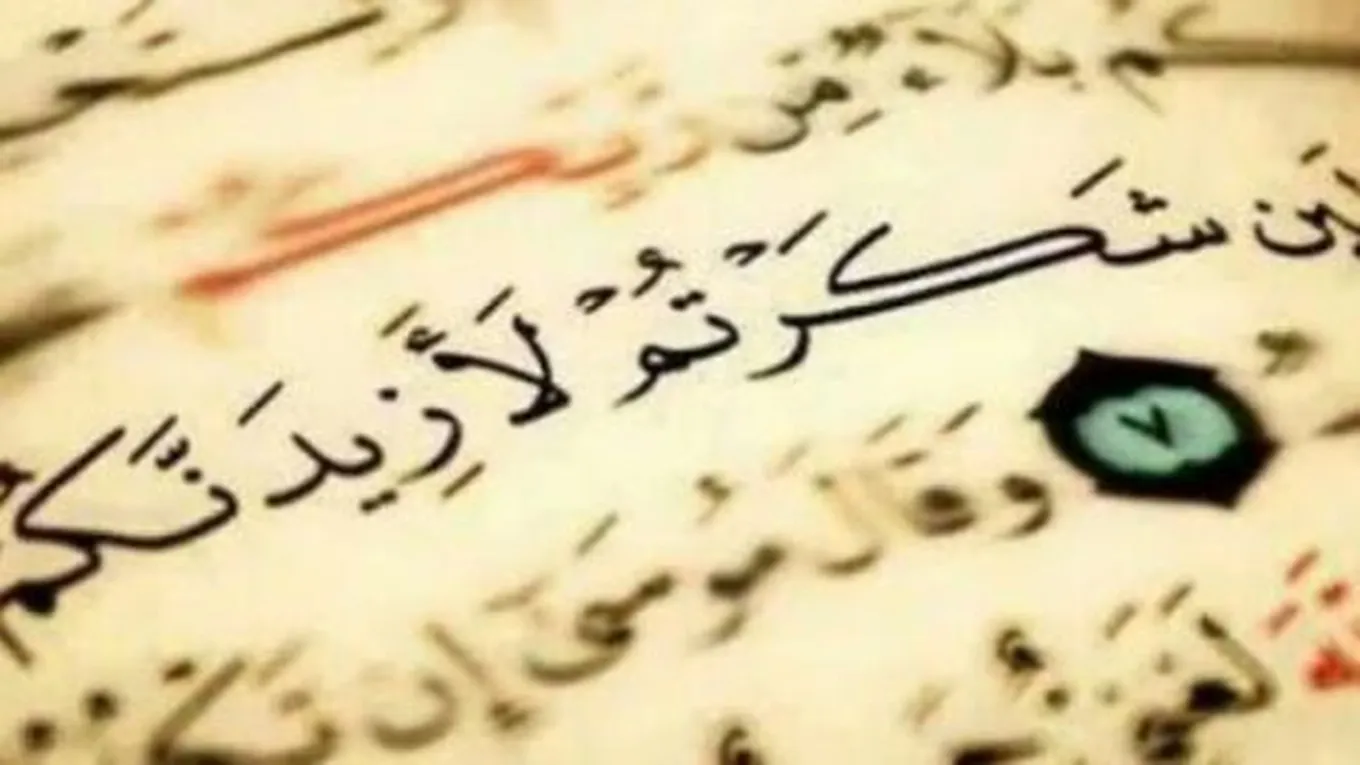 كُم بَلَاءٌ مِّن رَّبِّكُمْ
لَئِن شَكَرْتُمْ لَأَزِيدَنَّكُمْ
٧ وَقَالَ مُوسَىٰ إِن
لَغَنِيٌّ